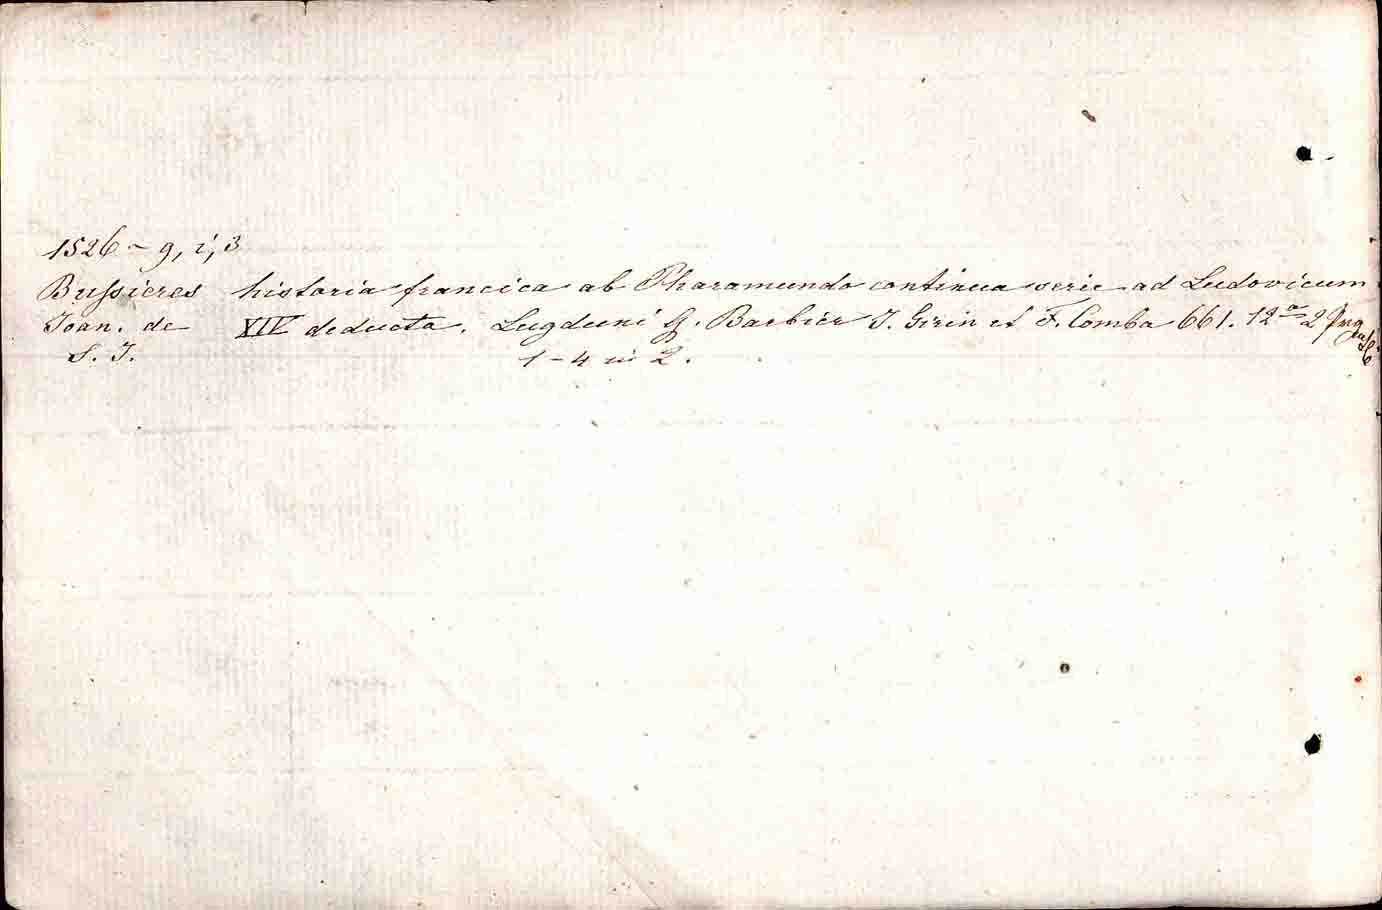 1526 - 9, i, 3
Bussieres historia francica ab Pharamundo continua serie ad Ludovicum
Joan. de XIV deducta. Lugduni G. Barbier J. Girin et F. Comba 661. 12° 2
S. J. 1-4 in 2.